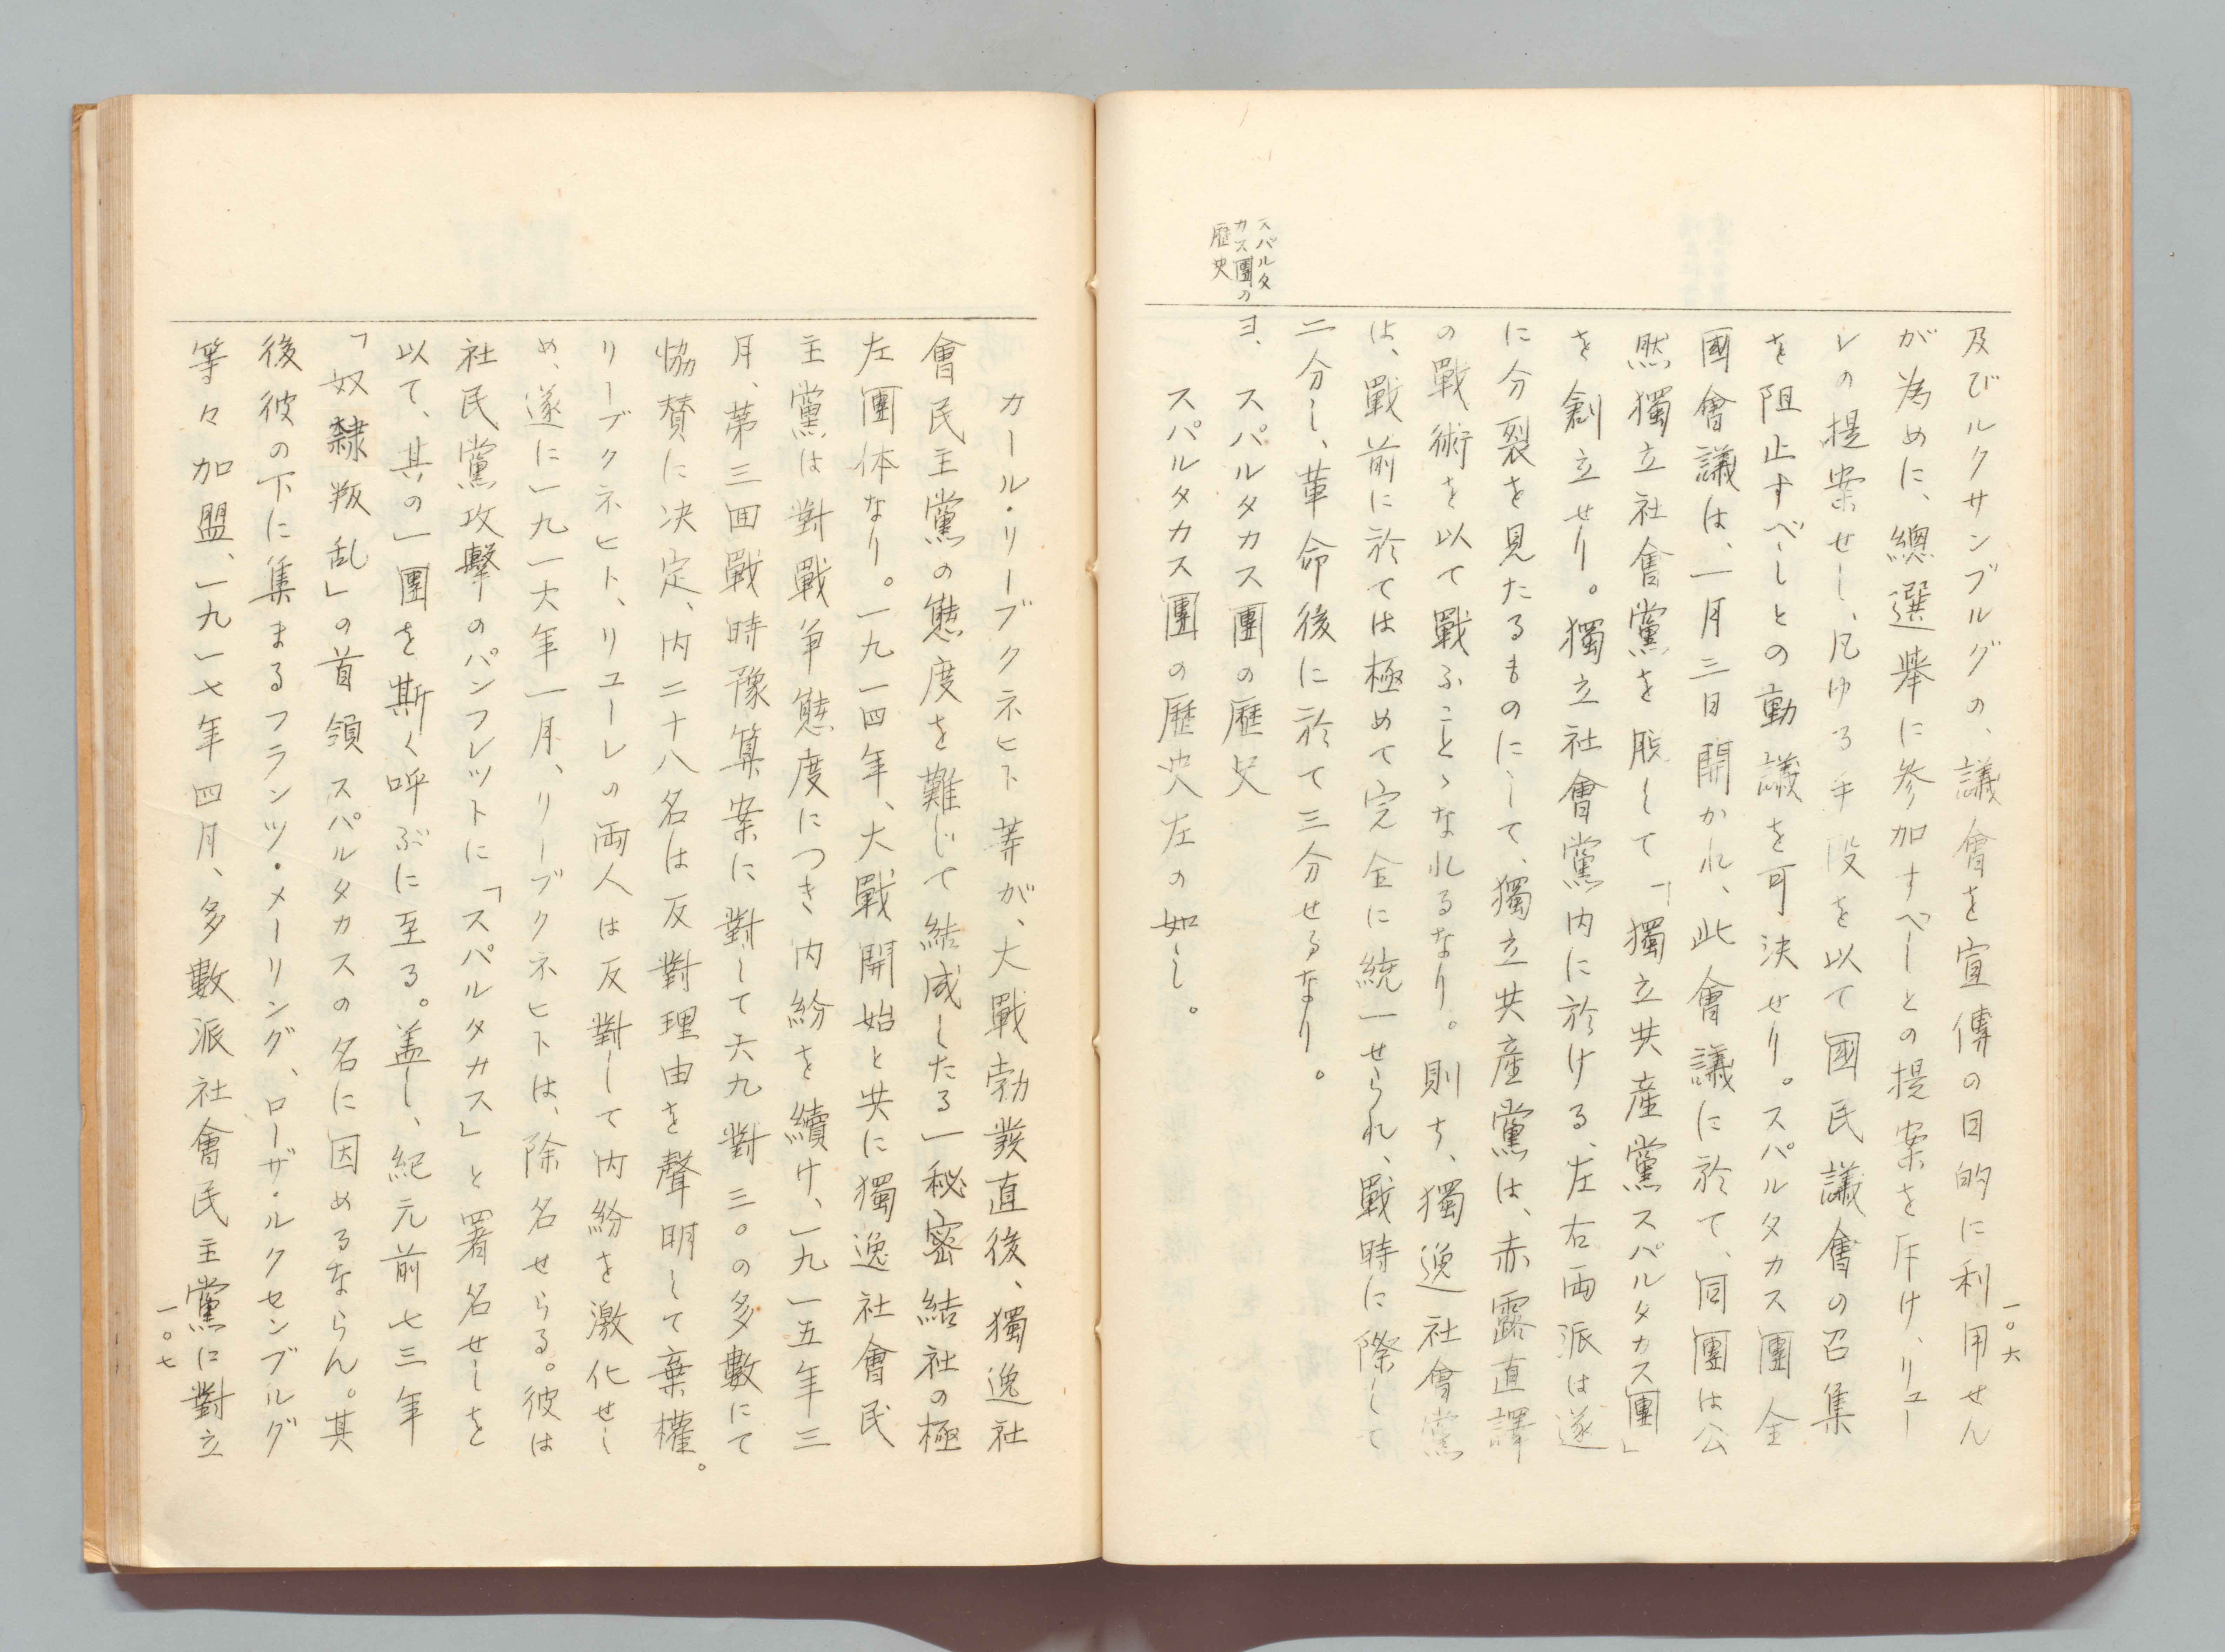 一〇六
及びルクサンブルグの、議會を宣傳の目的に利用せん
が為めに、總選擧に参加すべしとの提案を斥け、リュー
レの提案せし、凡ゆる手段を以て國民議會の召集
を阻止すべしとの動議を可決せり。スパルタカス團全
國會議は、一月三日開かれ、此會議に於て、同團は公
然獨立社會黨を脱して「獨立共産黨スパルタカス團」
を創立せり。獨立社會黨内に於ける、左右両派は遂
に分裂を見たるものにして、獨立共産黨は、赤露直譯
の戰術を以て戰ふことゝなれるなり。則ち、獨逸社會黨
は、戰前に於ては極めて完全に統一せられ、戰時に際して
二分し、革命後に於て三分せるなり。
スパルタ
カス團の
歴史
ヨ、スパルタカス團の歴史
スパルタカス團の歴史左の如し。
カール・リーブクネヒト等が、大戰勃発直後、獨逸社
會民主黨の態度を難じて結成したる一秘密結社の極
左團体なり。一九一四年、大戰開始と共に獨逸社會民
主黨は對戰争態度につき内紛を續け、一九一五年三
月、第三回戰時豫算案に對して六九對三〇の多數にて
協賛に決定、内二十八名は反對理由を聲明して棄權。
リーブクネヒト、リューレの両人は反對して内紛を激化せし
め、遂に一九一六年一月、リーブクネヒトは、除名せらる。彼は
社民黨攻擊のパンフレットに「スパルタカス」と署名せしを
以て、其の一團を斯く呼ぶに至る。蓋し、紀元前七三年
「奴隷叛乱」の首領スパルタカスの名に因めるならん。其
後彼の下に集まるフランツ・メーリング、ローザ・ルクセンブルグ
等々加盟、一九一七年四月、多數派社會民主黨に對立
一〇七